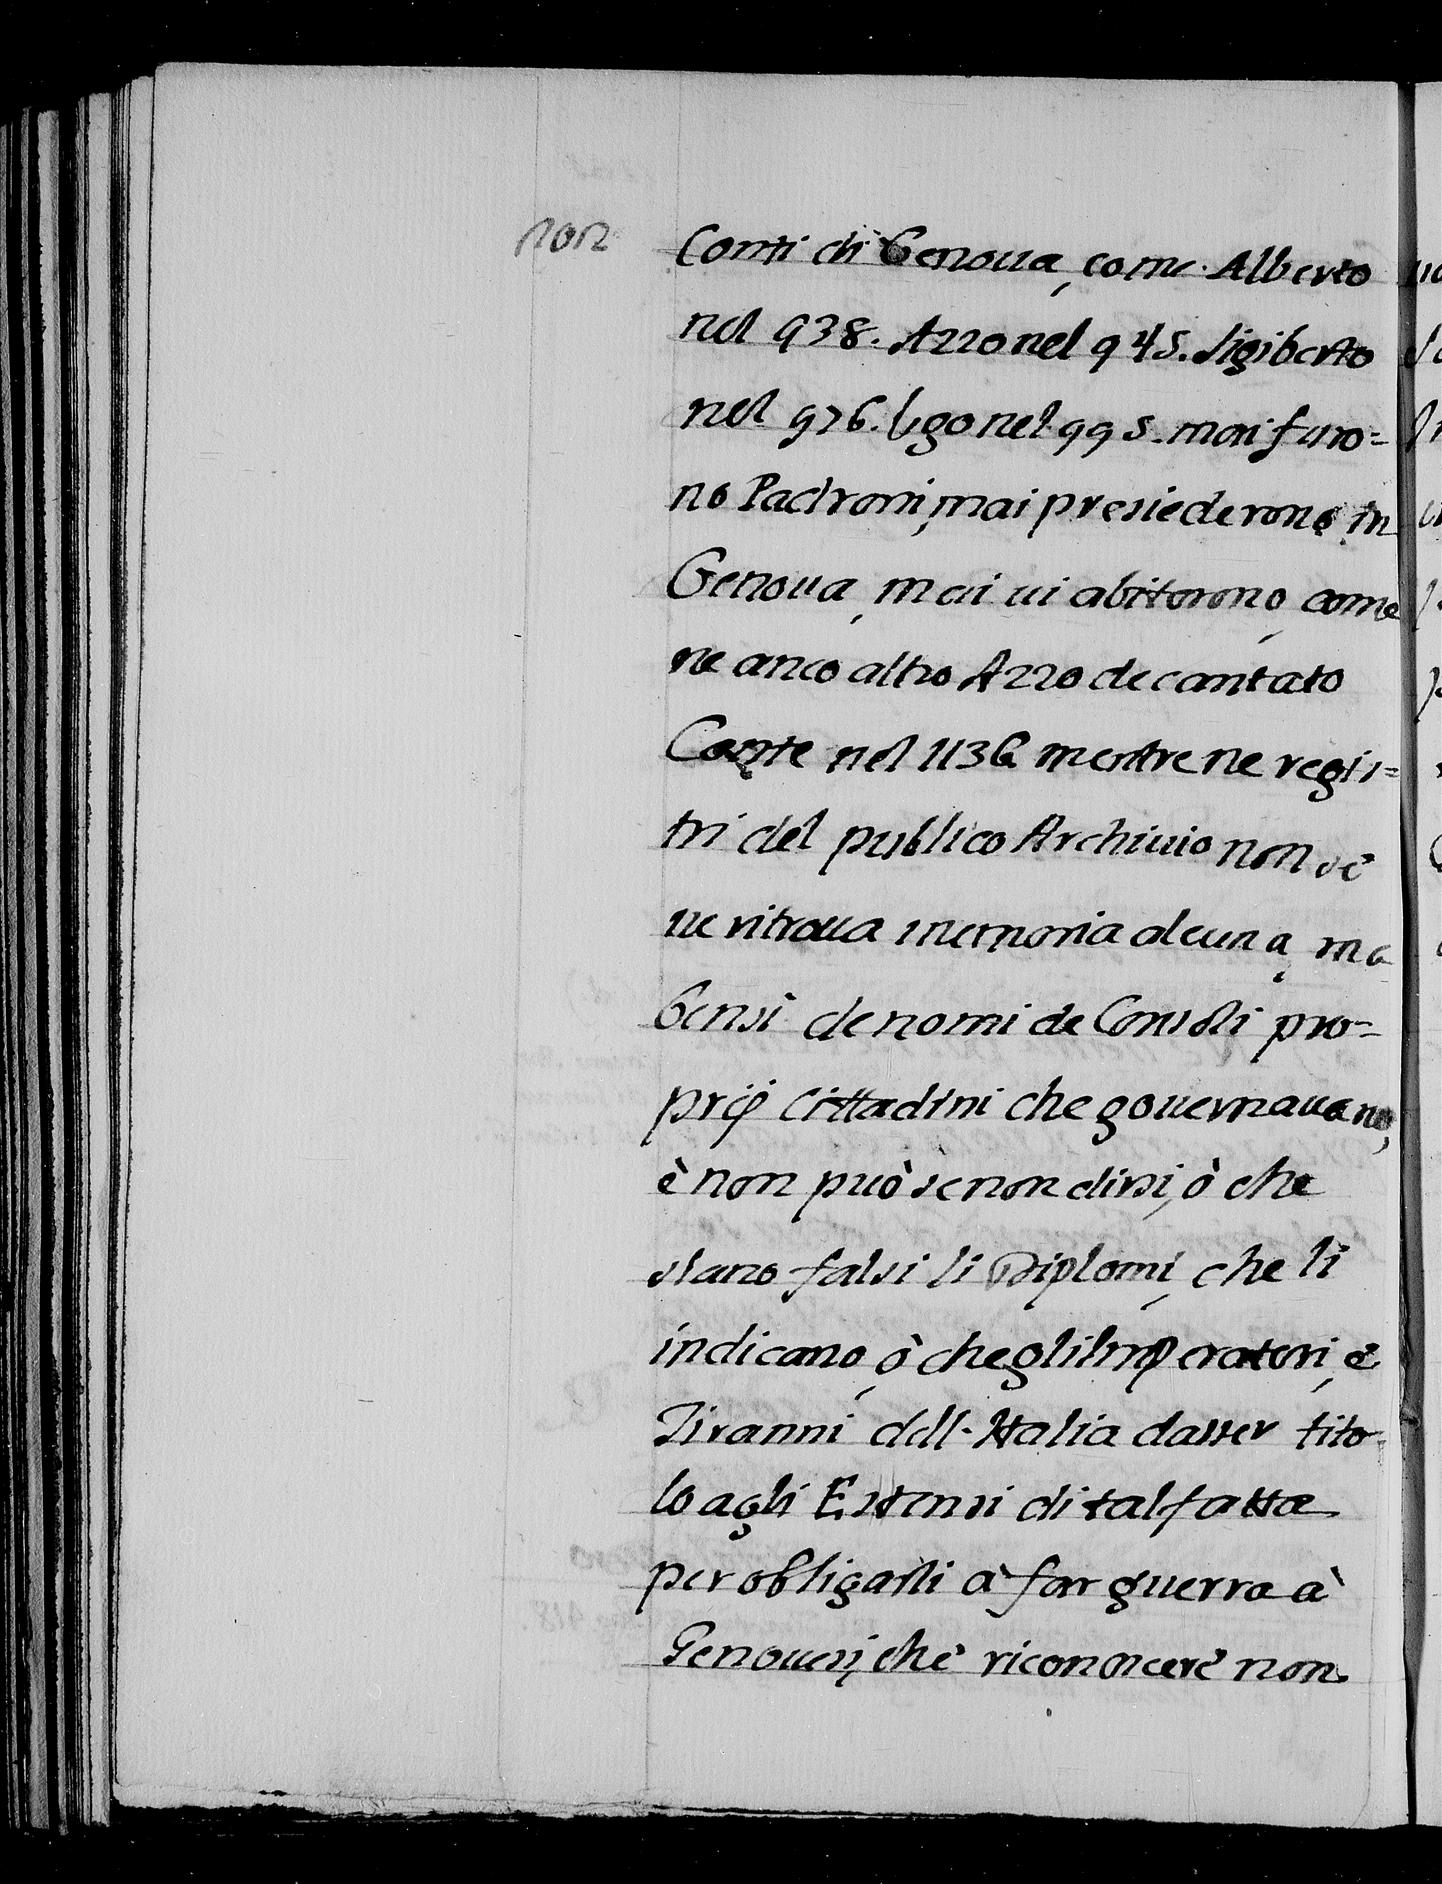 1012
Conti di Genoua, come Alberto
nel 938. Azzo nel 945. Sigiberto
nel 976. Ugo nel 995. mai furo=
no Padroni, mai presiederono in
Genoua, mai ui abitorono, come
ne anco altro Azzo decantato
Conte nel 1136 mentre ne regis=
tri del publico Archiuio non se
ne ritroua memoria alcuna, ma
bensì de nomi de Consoli pro=
prij Cittadini che gouernauano,
è non può se non dirsi, ò che
siano falsi li Diplomi, che li
indicano, ò che gli Imperatori, è
Tiranni dell'Italia dasser tito
lo agli Estensi di tal fatta
per obligarli à far guerra à
Genouesi, che riconoscere non